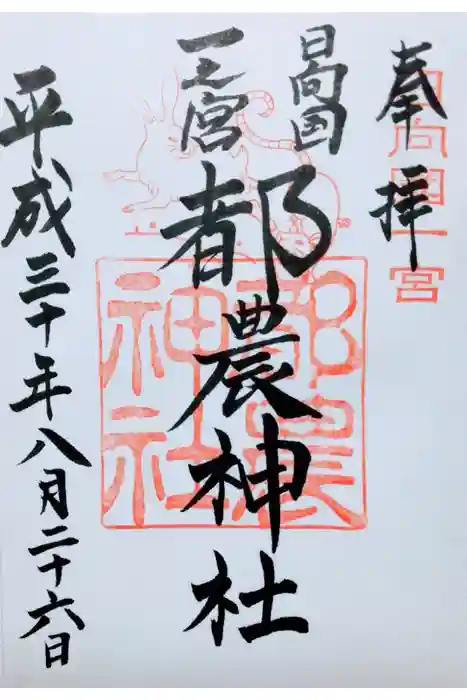 奉拝
日向国一宮
日向国
一之宮
都農神社
都農神社
平成三十年八月二十六日